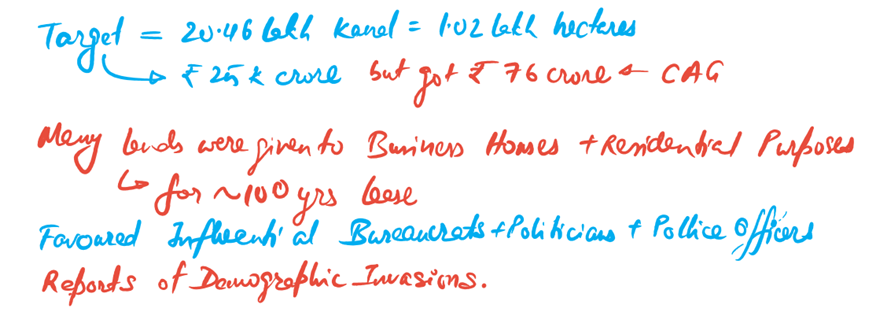 Target = 20.46 lakh kanal = 1.02 lakh hectares
→ ₹ 25 k crore but got ₹ 76 crore ← CAG
Many lands were given to Business Houses + Residential Purposes
↳ for ~100 yrs lease
Favoured Influential Bureaucrats + Politicians + Police Officers
Reports of Demographic Invasions.